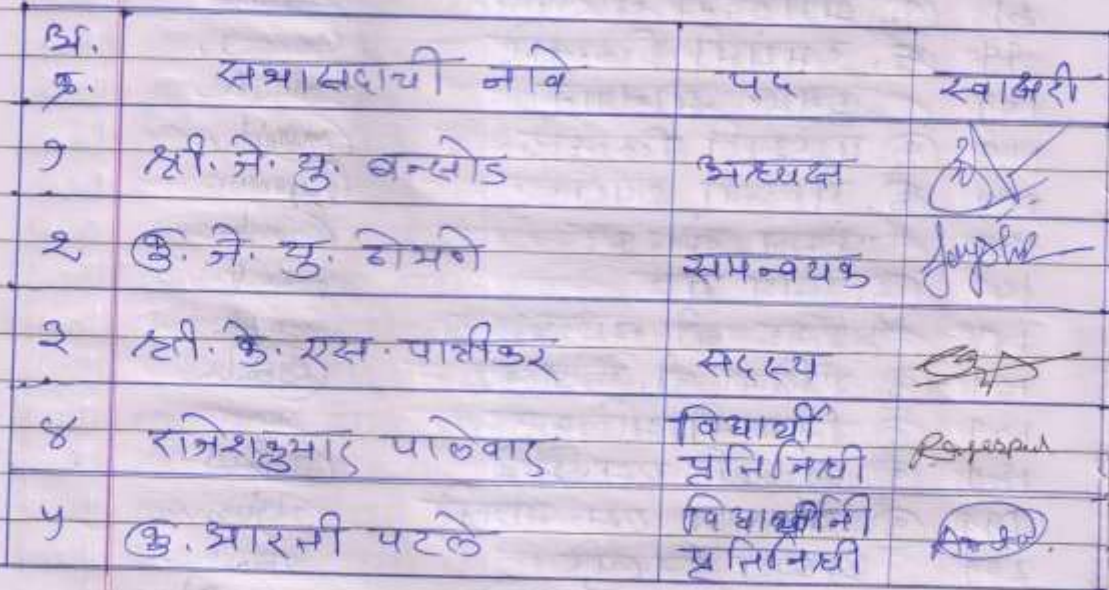 अ.
क्र. सभासदाची नावे पद स्वाक्षरी
१ श्री. जे. यु. बन्सोड अध्यक्ष
२ कु. जे. यु. ठोमणे समन्वयक Jayshe
३ श्री. के. एस. पात्रीकर सदस्य
४ राजेशकुमार पाळेवार विद्यार्थी
प्रतिनिधी
५ कु. आरती पटले विद्यार्थीनी
प्रतिनिधी